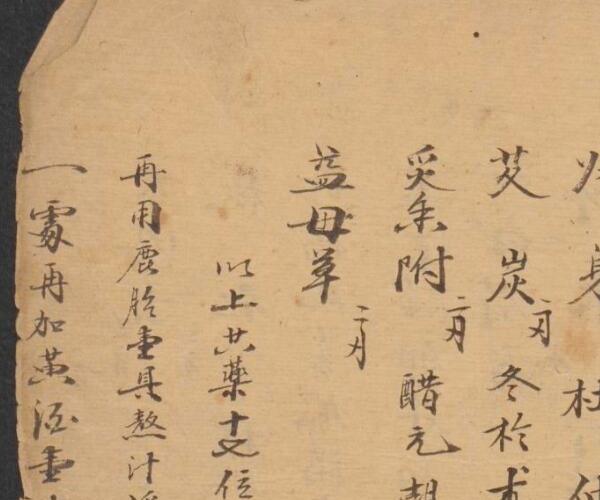 身 杜
艾炭 二月 冬於朮
炙香附 二月 醋元胡
益母草 二月
以上共藥十七位
再用鹿胎壹具熬汁
一處再加黃酒壹